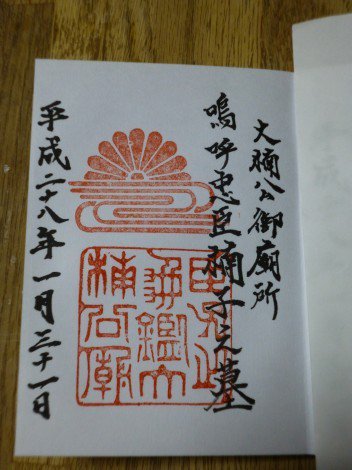 大楠公御廟所
嗚呼忠臣楠子之墓
平成二十八年一月三十一日
楠公廟